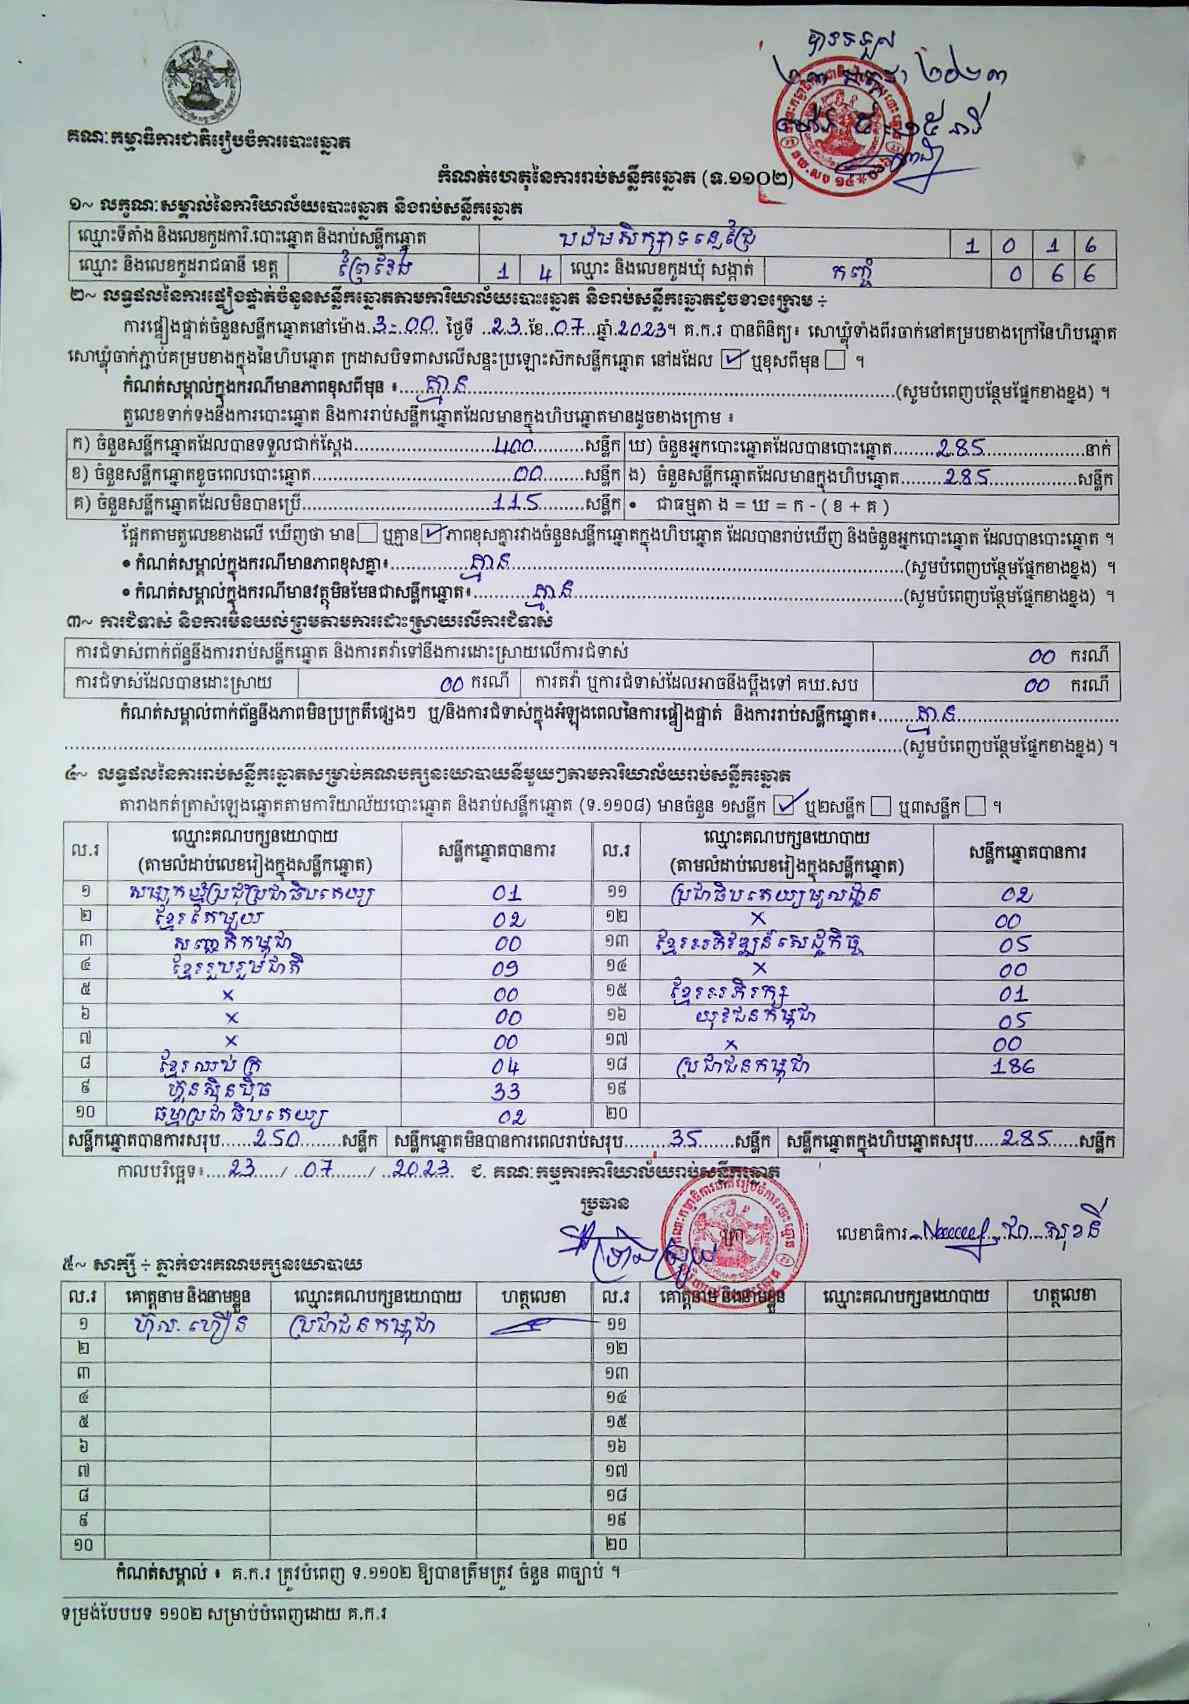 បានទទួល
២៣ កក្កដា ២០២៣
គណៈកម្មាធិការជាតិរៀបចំការបោះឆ្នោត
កំណត់ហេតុនៃការរាប់សន្លឹកឆ្នោត (ទ.១១០២)
១~ លក្ខណៈសម្គាល់នៃការិយាល័យបោះឆ្នោត និងរាប់សន្លឹកឆ្នោត
ឈ្មោះទីតាំង និងលេខកូដការិ.បោះឆ្នោត និងរាប់សន្លឹកឆ្នោត បឋមសិក្សាទន្លេជ្រៃ 1 0 1 6
ឈ្មោះ និងលេខកូដរាជធានី ខេត្ត ព្រៃវែង 1 4 ឈ្មោះ និងលេខកូដឃុំ សង្កាត់ កញ្ជំ 0 6 6
២~ លទ្ធផលនៃការផ្ទៀងផ្ទាត់ចំនួនសន្លឹកឆ្នោតតាមការិយាល័យបោះឆ្នោត និងរាប់សន្លឹកឆ្នោតដូចខាងក្រោម ÷
ការផ្ទៀងផ្ទាត់ចំនួនសន្លឹកឆ្នោតនៅម៉ោង.3-00 ថ្ងៃទី 23 ខែ 07 ឆ្នាំ 2023។ គ.ក.រ បានពិនិត្យ៖ សោឃ្លុំទាំងពីរចាក់នៅគម្របខាងក្រៅនៃហិបឆ្នោត
សោឃ្លុំចាក់ភ្ជាប់គម្របខាងក្នុងនៃហិបឆ្នោត ក្រដាសបិទពាសលើសន្ទះប្រឡោះស៊កសន្លឹកឆ្នោត នៅដដែល ☑ ឬខុសពីមុន ☐ ។
កំណត់សម្គាល់ក្នុងករណីមានភាពខុសពីមុន ៖ គ្មាន (សូមបំពេញបន្ថែមផ្នែកខាងខ្នង) ។
តួលេខទាក់ទងនឹងការបោះឆ្នោត និងការរាប់សន្លឹកឆ្នោតដែលមានក្នុងហិបឆ្នោតមានដូចខាងក្រោម ៖
ក) ចំនួនសន្លឹកឆ្នោតដែលបានទទួលជាក់ស្ដែង 400 សន្លឹក ឃ) ចំនួនអ្នកបោះឆ្នោតដែលបានបោះឆ្នោត 285 នាក់
ខ) ចំនួនសន្លឹកឆ្នោតខូចពេលបោះឆ្នោត 00 សន្លឹក ង) ចំនួនសន្លឹកឆ្នោតដែលមានក្នុងហិបឆ្នោត 285 សន្លឹក
គ) ចំនួនសន្លឹកឆ្នោតដែលមិនបានប្រើ 115 សន្លឹក • ជាធម្មតា ង = ឃ = ក - ( ខ + គ )
ផ្អែកតាមតួលេខខាងលើ ឃើញថា មាន ☐ ឬគ្មាន ☑ ភាពខុសគ្នារវាងចំនួនសន្លឹកឆ្នោតក្នុងហិបឆ្នោត ដែលបានរាប់ឃើញ និងចំនួនអ្នកបោះឆ្នោត ដែលបានបោះឆ្នោត ។
• កំណត់សម្គាល់ក្នុងករណីមានភាពខុសគ្នា៖ គ្មាន (សូមបំពេញបន្ថែមផ្នែកខាងខ្នង) ។
• កំណត់សម្គាល់ក្នុងករណីមានវត្ថុមិនមែនជាសន្លឹកឆ្នោត៖ គ្មាន (សូមបំពេញបន្ថែមផ្នែកខាងខ្នង) ។
៣~ ការជំទាស់ និងការមិនយល់ព្រមតាមការដោះស្រាយលើការជំទាស់
ការជំទាស់ពាក់ព័ន្ធនឹងការរាប់សន្លឹកឆ្នោត និងការតវ៉ាទៅនឹងការដោះស្រាយលើការជំទាស់ 00 ករណី
ការជំទាស់ដែលបានដោះស្រាយ 00 ករណី ការតវ៉ា ឬការជំទាស់ដែលអាចនឹងប្ដឹងទៅ គឃ.សប 00 ករណី
កំណត់សម្គាល់ពាក់ព័ន្ធនឹងភាពមិនប្រក្រតីផ្សេងៗ ឬ/និងការជំទាស់ក្នុងអំឡុងពេលនៃការផ្ទៀងផ្ទាត់ និងការរាប់សន្លឹកឆ្នោត៖ គ្មាន
(សូមបំពេញបន្ថែមផ្នែកខាងខ្នង) ។
៤~ លទ្ធផលនៃការរាប់សន្លឹកឆ្នោតសម្រាប់គណបក្សនយោបាយនីមួយៗតាមការិយាល័យរាប់សន្លឹកឆ្នោត
តារាងកត់ត្រាសំឡេងឆ្នោតតាមការិយាល័យបោះឆ្នោត និងរាប់សន្លឹកឆ្នោត (ទ.១១០៨) មានចំនួន ១សន្លឹក ☑ ឬ២សន្លឹក ☐ ឬ៣សន្លឹក ☐ ។
ល.រ ឈ្មោះគណបក្សនយោបាយ (តាមលំដាប់លេខរៀងក្នុងសន្លឹកឆ្នោត) សន្លឹកឆ្នោតបានការ ល.រ ឈ្មោះគណបក្សនយោបាយ (តាមលំដាប់លេខរៀងក្នុងសន្លឹកឆ្នោត) សន្លឹកឆ្នោតបានការ
១ សំបុកឃ្មុំប្រជាធិបតេយ្យ 01 ១១ ប្រជាធិបតេយ្យមូលដ្ឋាន 02
២ ខ្មែរតែមួយ 02 ១២ x 00
៣ សញ្ជាតិកម្ពុជា 00 ១៣ ខ្មែរអភិវឌ្ឍន៍សេដ្ឋកិច្ច 05
៤ ខ្មែររួបរួមជាតិ 09 ១៤ x 00
៥ x 00 ១៥ ខ្មែរអភិរក្ស 01
៦ x 00 ១៦ យុវជនកម្ពុជា 05
៧ x 00 ១៧ x 00
៨ ខ្មែរឈប់ក្រ 04 ១៨ ប្រជាជនកម្ពុជា 186
៩ ហ៊្វុនស៊ិនប៉ិច 33 ១៩
១០ ធម្មាប្រជាធិបតេយ្យ 02 ២០
សន្លឹកឆ្នោតបានការសរុប 250 សន្លឹក សន្លឹកឆ្នោតមិនបានការពេលរាប់សរុប 35 សន្លឹក សន្លឹកឆ្នោតក្នុងហិបឆ្នោតសរុប 285 សន្លឹក
កាលបរិច្ឆេទ៖ 23 / 07 / 2023 ជ. គណៈកម្មការការិយាល័យរាប់សន្លឹកឆ្នោត
ប្រធាន
លេខាធិការ ជា សុខនី
៥~ សាក្សី ÷ ភ្នាក់ងារគណបក្សនយោបាយ
ល.រ គោត្តនាម និងនាមខ្លួន ឈ្មោះគណបក្សនយោបាយ ហត្ថលេខា ល.រ គោត្តនាម និងនាមខ្លួន ឈ្មោះគណបក្សនយោបាយ ហត្ថលេខា
១ ហ៊ុល ហឿន ប្រជាជនកម្ពុជា ១១
២ ១២
៣ ១៣
៤ ១៤
៥ ១៥
៦ ១៦
៧ ១៧
៨ ១៨
៩ ១៩
១០ ២០
កំណត់សម្គាល់ ៖ គ.ក.រ ត្រូវបំពេញ ទ.១១០២ ឱ្យបានត្រឹមត្រូវ ចំនួន ៣ច្បាប់ ។
ទម្រង់បែបបទ ១១០២ សម្រាប់បំពេញដោយ គ.ក.រ